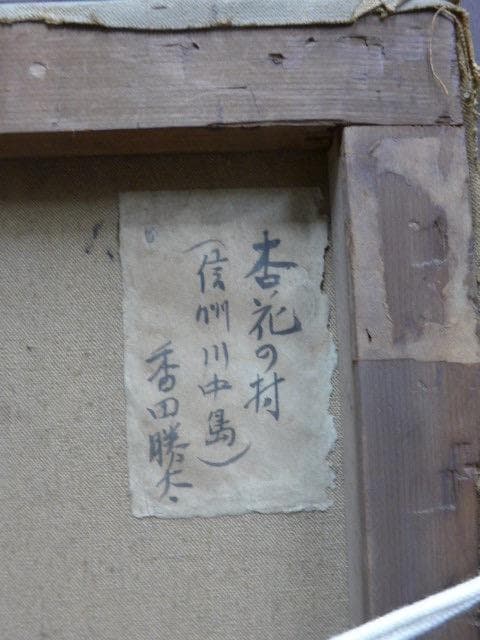 杏花の村
(信州川中島)
香田勝太